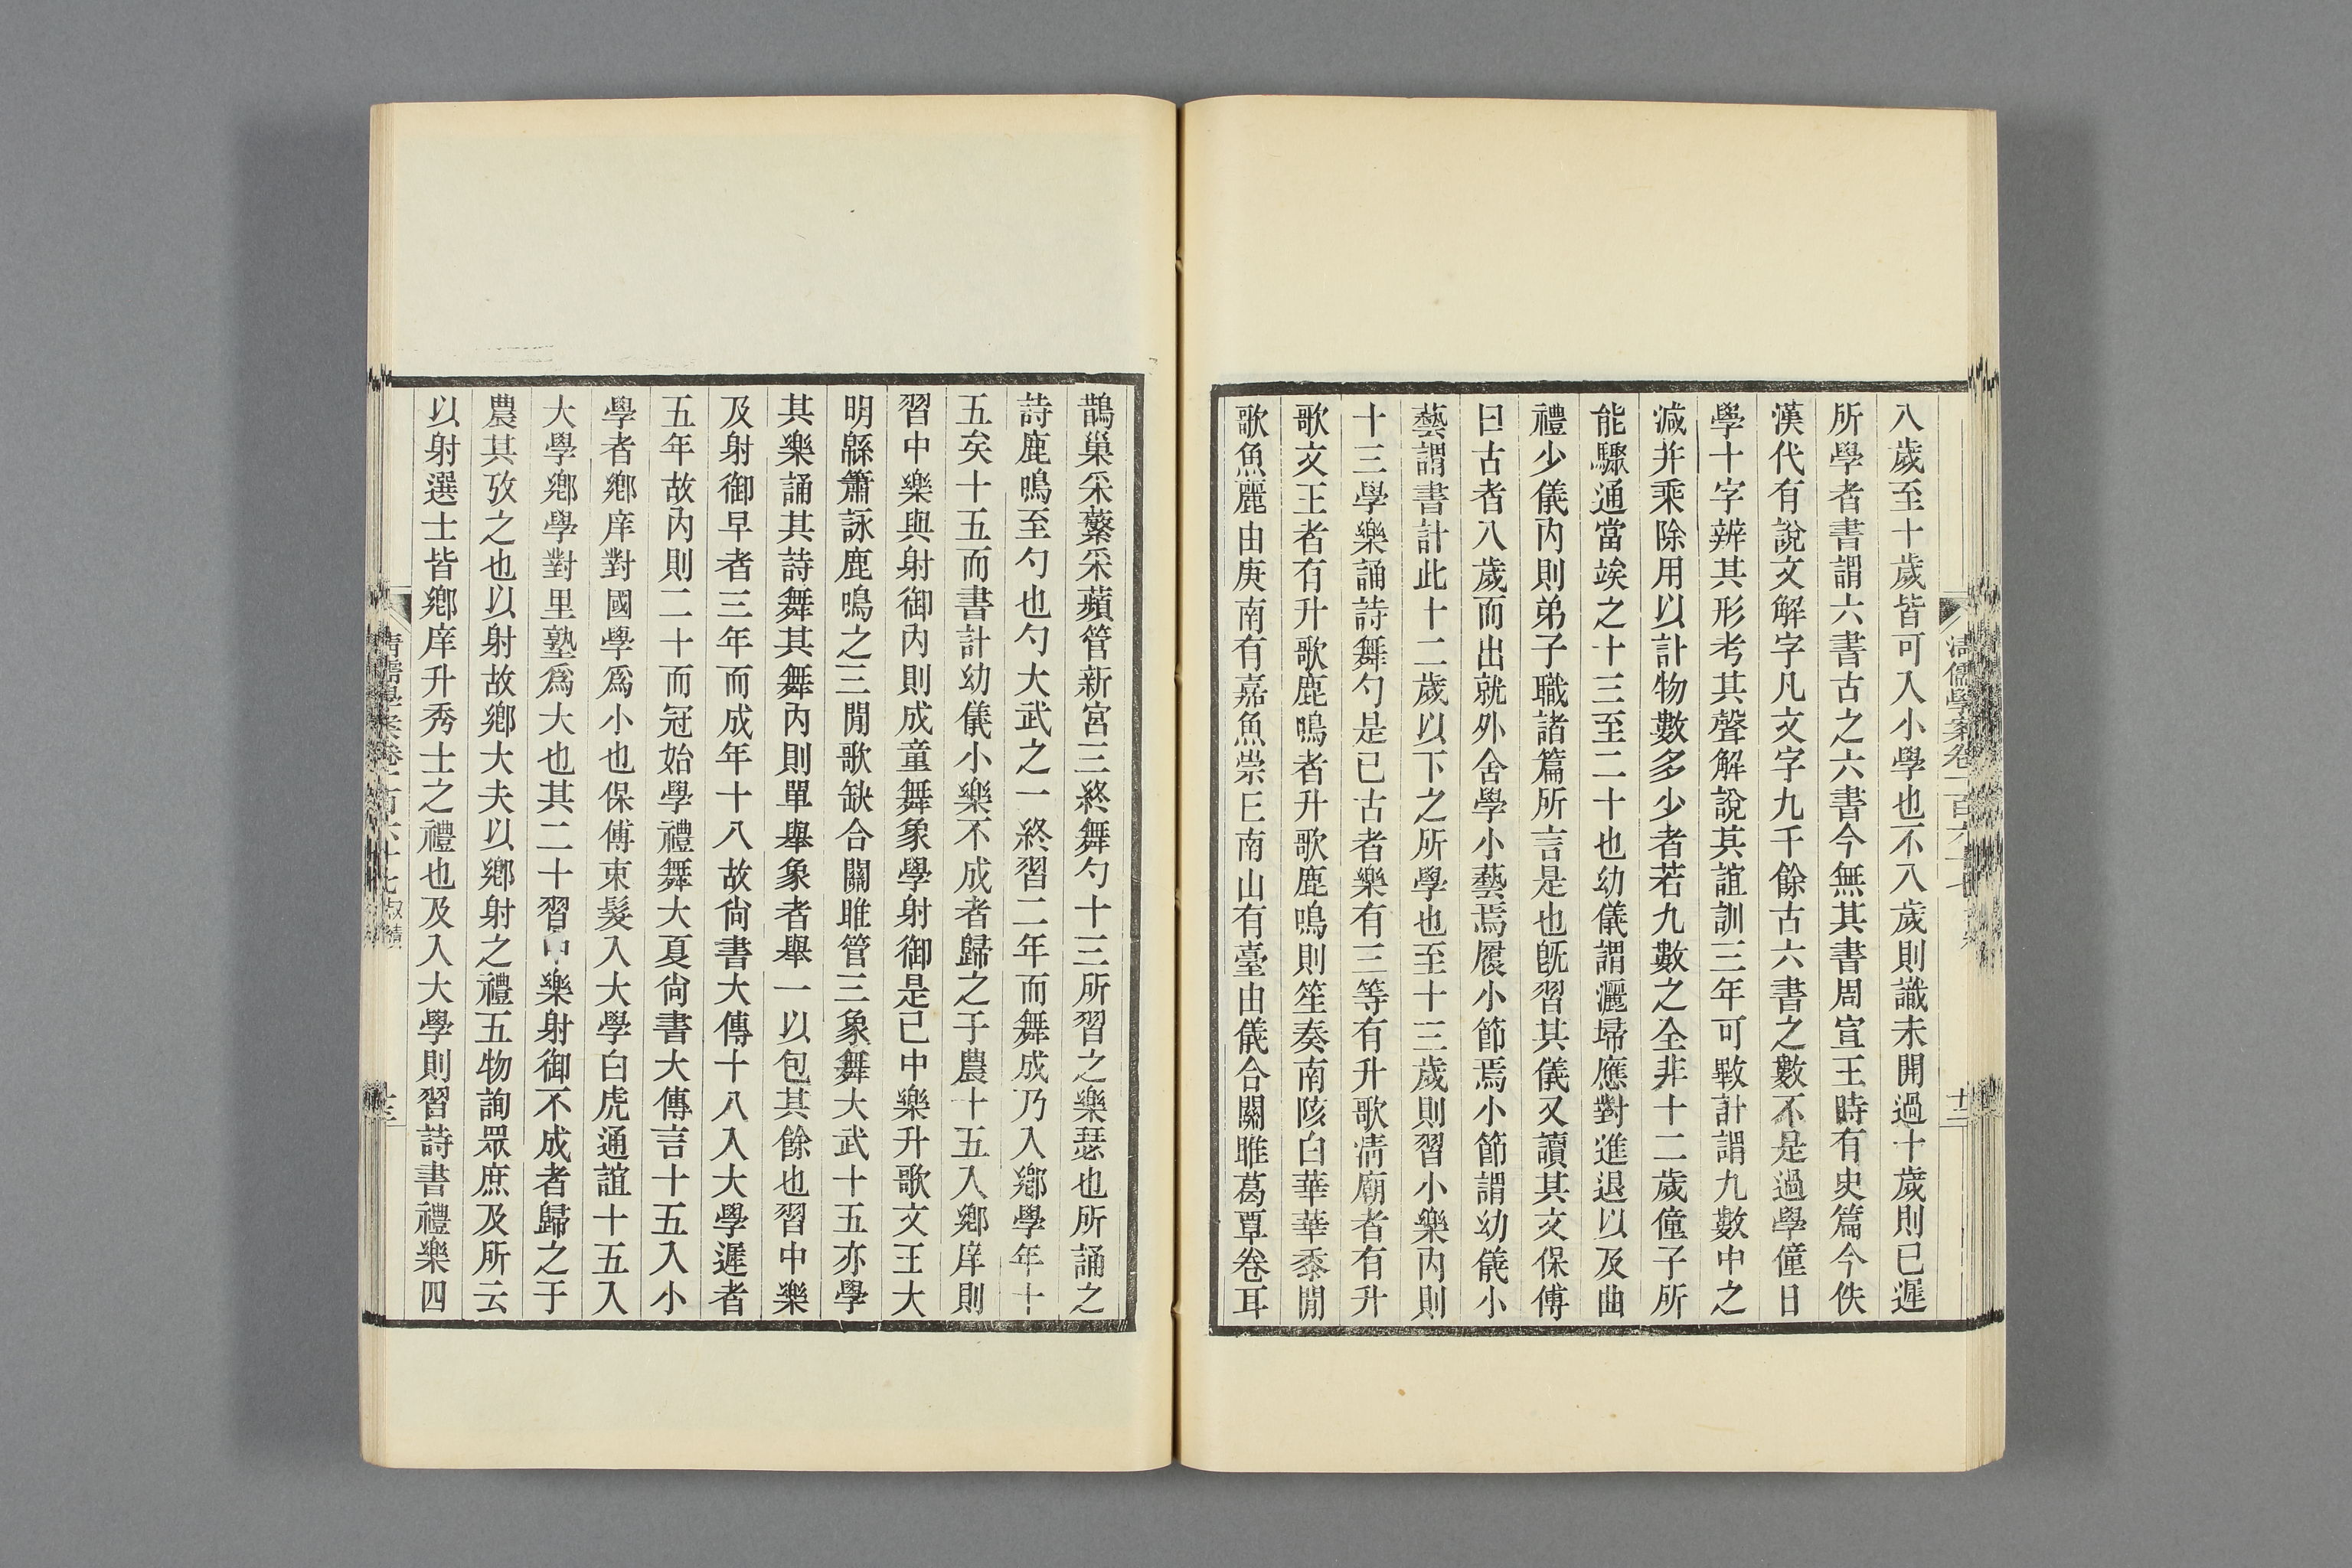 八歲至十歲皆可入小學也不入歲則識未開過十歲則已遲
所學者書謂六書古之六書今無其書周宣王時有史篇今佚
漢代有說文解字凡文字九千餘古六書之數不是過學僮日
學十字辨其形考其聲解說其誼訓三年可斁計謂九數中之
減并乘除用以計物數多少者若九數之全非十二歲僮子所
能驟通當竢之十三至二十也幼儀謂灑埽應對進退以及曲
禮少儀內則弟子職諸篇所言是也旣習其儀又讀其文保傅
曰古者八歲而出就外舍學小藝焉履小節焉小節謂幼儀小
藝謂書計此十二歲以下之所學也至十三歲則習小樂內則
十三學樂誦詩舞勺是已古者樂有三等有升歌淸廟者有升
歌文王者有升歌鹿鳴者升歌鹿鳴則笙奏南陔白華華黍閒
歌魚麗由庚南有嘉魚崇丘南山有臺由儀合關雎葛覃卷耳
鵲巢采蘩采蘋管新宮三終舞勺十三所習之樂瑟也所誦之
詩鹿鳴至勺也勺大武之一終習二年而舞成乃入鄕學年十
五矣十五而書計幼儀小樂不成者歸之于農十五入鄕庠則
習中樂與射御內則成童舞象學射御是已中樂升歌文王大
明緜簫詠鹿鳴之三閒歌缺合關雎管三象舞大武十五亦學
其樂誦其詩舞其舞內則單舉象者舉一以包其餘也習中樂
及射御早者三年而成年十八故尙書大傳十八入大學遲者
五年故內則二十而冠始學禮舞大夏尙書大傳言十五入小
學者鄕庠對國學爲小也保傅束髮入大學白虎通誼十五入
大學鄕學對里塾爲大也其二十習中樂射御不成者歸之于
農其攷之也以射故鄕大夫以鄕射之禮五物詢眾庶及所云
以射選士皆鄕庠升秀士之禮也及入大學則習詩書禮樂四